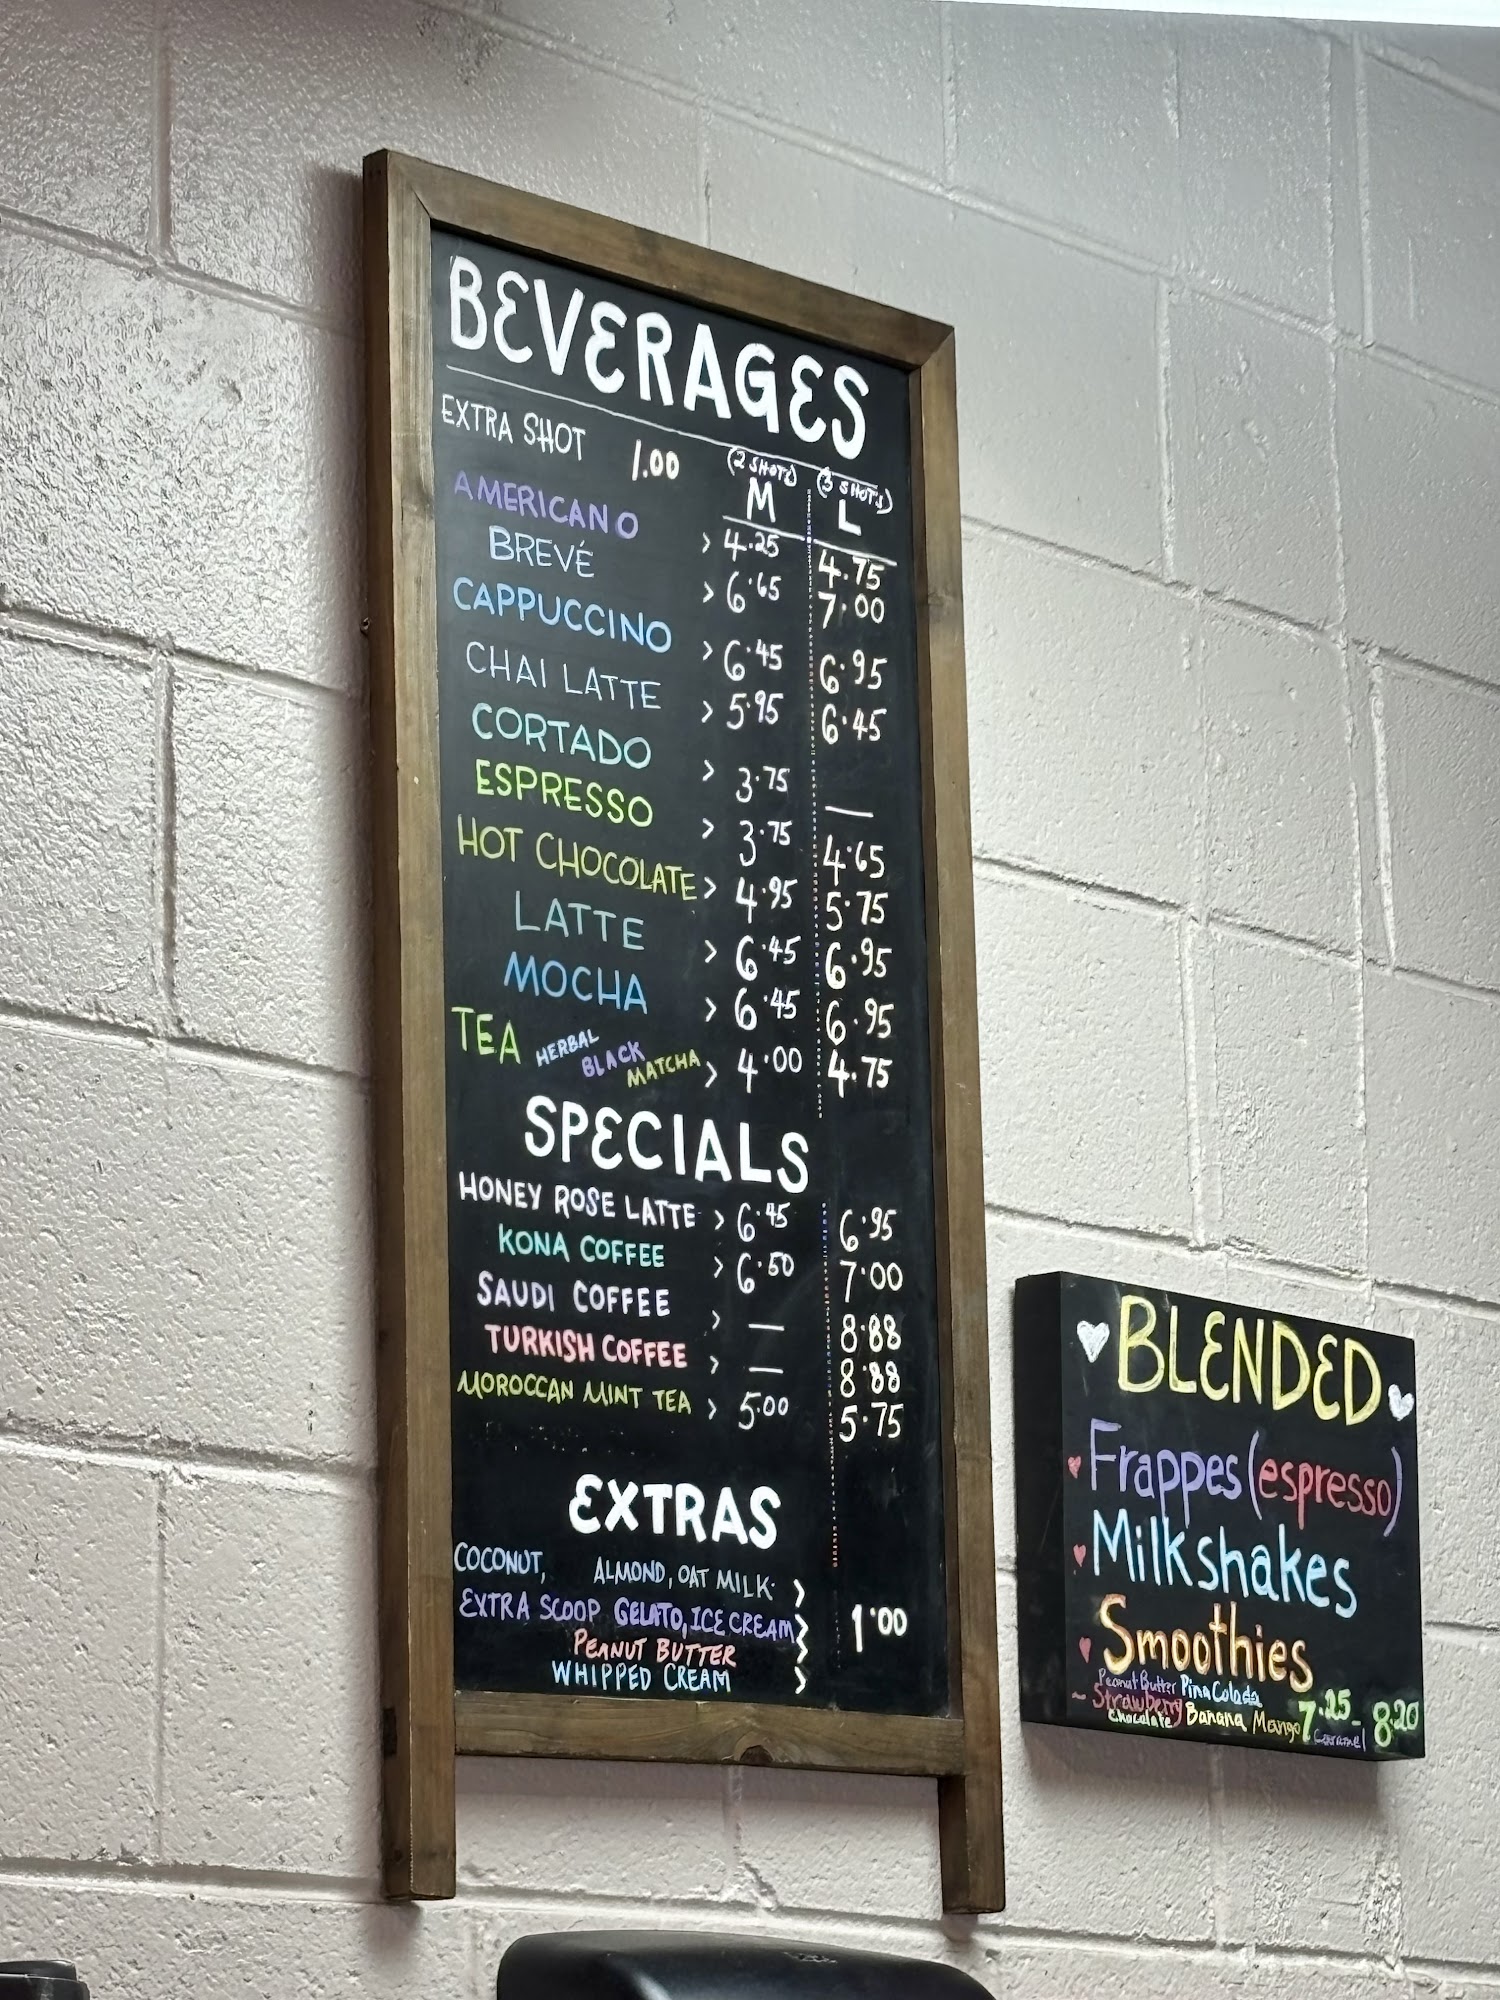 BEVERAGES
EXTRA SHOT 1.00 (2 SHOTS) (3 SHOTS)
M L
AMERICANO > 4.25 4.75
BREVÉ > 6.65 7.00
CAPPUCCINO > 6.45 6.95
CHAI LATTE > 5.95 6.45
CORTADO > 3.75 —
ESPRESSO > 3.75 4.65
HOT CHOCOLATE > 4.95 5.75
LATTE > 6.45 6.95
MOCHA > 6.45 6.95
TEA HERBAL BLACK MATCHA > 4.00 4.75
SPECIALS
HONEY ROSE LATTE > 6.45 6.95
KONA COFFEE > 6.50 7.00
SAUDI COFFEE > — 8.88
TURKISH COFFEE > — 8.88
MOROCCAN MINT TEA > 5.00 5.75
EXTRAS
COCONUT, ALMOND, OAT MILK >
EXTRA SCOOP GELATO, ICE CREAM > 1.00
PEANUT BUTTER >
WHIPPED CREAM >
BLENDED
Frappes (espresso)
Milkshakes
Smoothies
Peanut Butter Pina Colada
- Strawberry Banana Mango 7.25 - 8.20
Chocolate Caramel